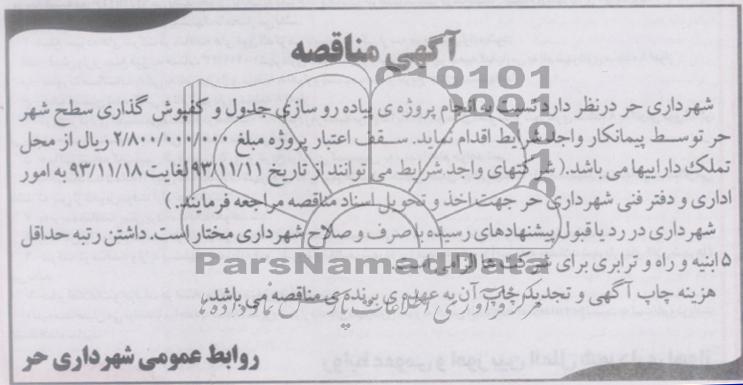 آگهی مناقصه
شهرداری حر درنظر دارد نسبت به انجام پروژه ی پیاده رو سازی جدول و کفپوش گذاری سطح شهر
حر توسط پیمانکار واجد شرایط اقدام نماید. سقف اعتبار پروژه مبلغ ۲/۸۰۰/۰۰۰/۰۰۰ ریال از محل
تملک داراییها می باشد.( شرکتهای واجد شرایط می توانند از تاریخ ۹۳/۱۱/۱۱ لغایت ۹۳/۱۱/۱۸ به امور
اداری و دفتر فنی شهرداری حر جهت اخذ و تحویل اسناد مناقصه مراجعه فرمایند.
شهرداری در رد یا قبول پیشنهادهای رسیده با صرف و صلاح شهرداری مختار است. داشتن رتبه حداقل
۵ ابنیه و راه و ترابری برای شرکت ها الزامی است.
ParsNamadData
هزینه چاپ آگهی و تجدید چاپ آن به عهده ی برنده ی مناقصه می باشد.
روابط عمومی شهرداری حر